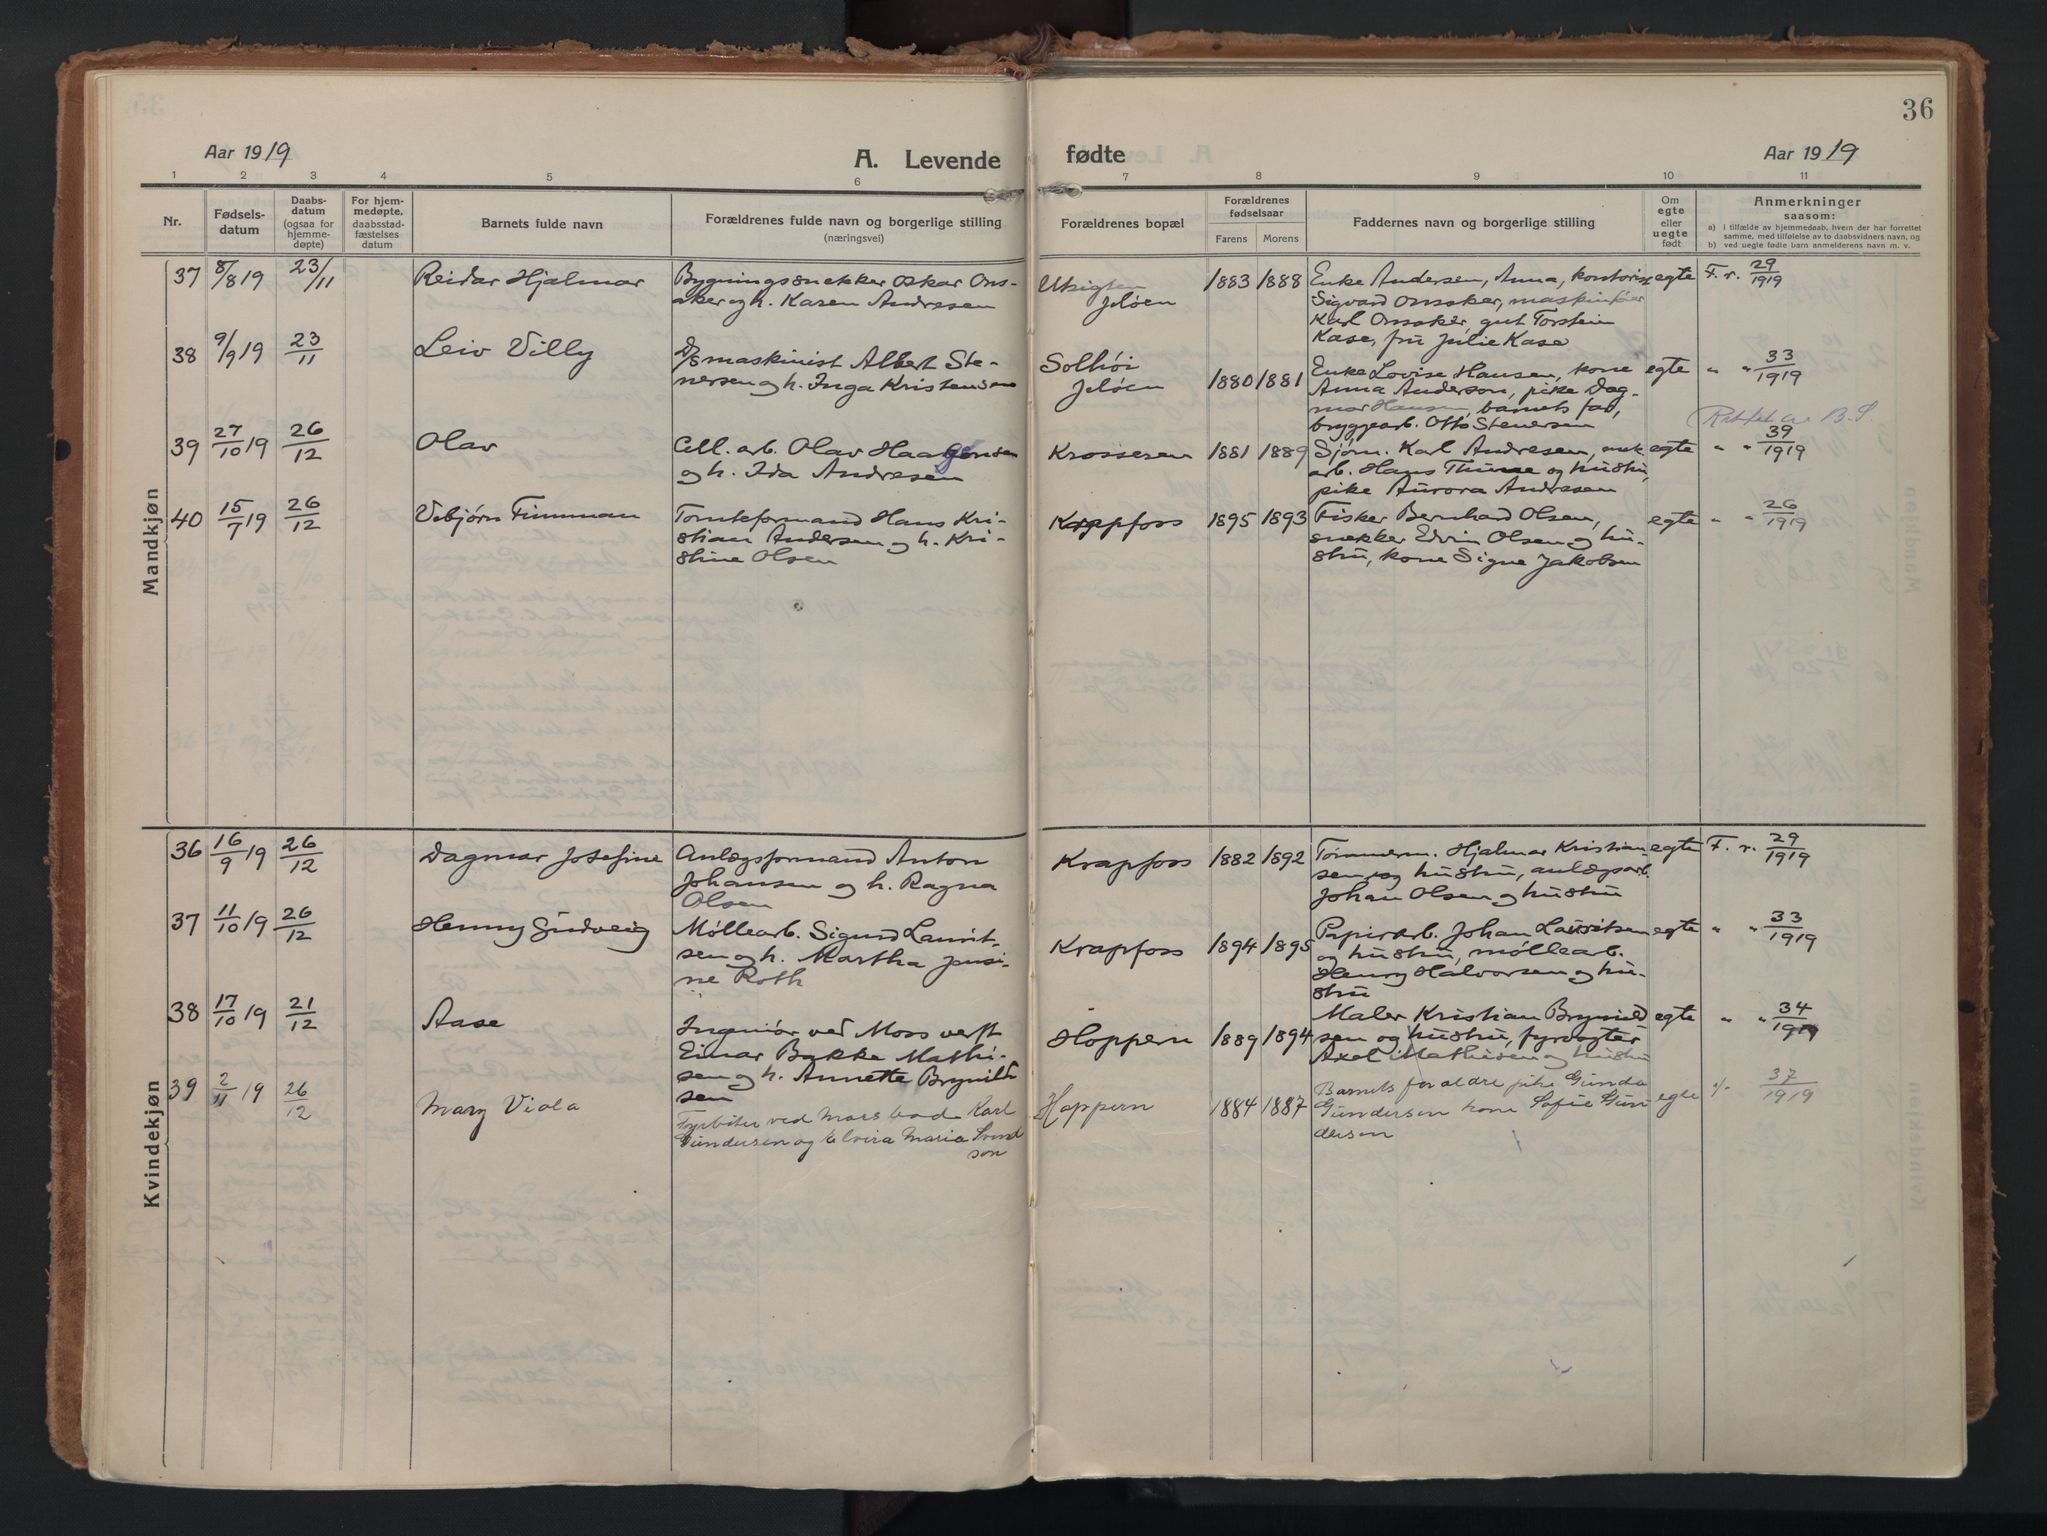 36
Aar 1919
A. Levende
fødte
Aar 1919
1 2 3 4 5 6 7 8 9 10 11
Nr.
Fødsels-
datum
Daabs-
datum
(ogsaa for
hjemme-
døpte)
For hjem-
medøpte,
daabsstad-
fæstelses
datum
Barnets fulde navn
Forældrenes fulde navn og borgerlige stilling
(næringsvei)
Forældrenes bopæl
Forældrenes
fødselsaar
Farens Morens
Faddernes navn og borgerlige stilling
Om
egte
eller
uegte
født
Anmerkninger
saasom:
a) i tilfælde av hjemmedaab, hvem der har forrettet
samme, med tilføielse av to daabsvidners navn, og
b) ved uegte fødte barn anmelderens navn m. v.
Mandkjøn
37 8/8 19 23/11 Reidar Hjalmar
Bygningssnekker Oskar Ons-
aker og h. Karen Andresen
Utsigten
Jeløen
1883 1888
Enke Andersen, Anna, kontorist
Sigvard Onsaker, maskinfører
Karl Onsaker, gut Torstein
Kase, fru Julie Kase
egte F. r. 29/1919
38 9/9 19 23/11 Leiv Villy
D/s maskinist Albert Ste-
nersen og h. Inga Kristensen
Solhøi
Jeløen
1880 1881
Enke Lovise Hansen, kone
Anna Anderson, pike Dag-
mar Hansen, barnets far,
bryggearb. Otto Stenersen
egte " " 33/1919
39 27/10 19 26/12 Olav
Cell. arb. Olav Haagensen
og h. Ida Andresen
Krosseren
1881 1889
Sjøm. Karl Andresen,
arb. Hans Thune og hustru,
pike Aurora Andresen
egte " " 39/1919
40 15/7 19 26/12 Vebjørn Finnman
Tomteformand Hans Kri-
stian Andersen og h. Kri-
stine Olsen
Krapfoss
1895 1893
Fisker Bernhard Olsen,
snekker Edvin Olsen og hu-
stru, kone Signe Jakobsen
egte " " 26/1919
Kvindekjøn
36 16/9 19 26/12 Dagmar Josefine
Anlægsformand Anton
Johansen og h. Ragna
Olsen
Krapfoss
1882 1892
Tømmerm. Hjalmar Kristian-
sen og hustru, anlægsarb.
Johan Olsen og hustru
egte F. r. 29/1919
37 11/10 19 26/12 Henny Gudveig
Møllearb. Sigurd Laurit-
sen og h. Martha Jensi-
ne Roth
Krapfoss
1894 1895
Papirarb. Johan Lauritsen
og hustru, møllearb.
Henry Halvorsen og hu-
stru
egte " " 33/1919
38 17/10 19 21/12 Aase
Ingeniør ved Moss verft
Einar Bakke Mathi-
sen og h. Annette Brynild
sen
Hoppern
1889 1894
Maler Kristian Brynild
sen og hustru, fyrvogter
Axel Mathisen og hustru
egte " " 34/1919
39 2/11 19 26/12 Mary Viola
Fyrbøter ved Moss bad Karl
Gundersen og Elvira Maria Svend
son
Hoppern
1884 1887
Barnets forældre pike Gunda
Gundersen kone Sofie Gun
dersen
egte " 37/1919